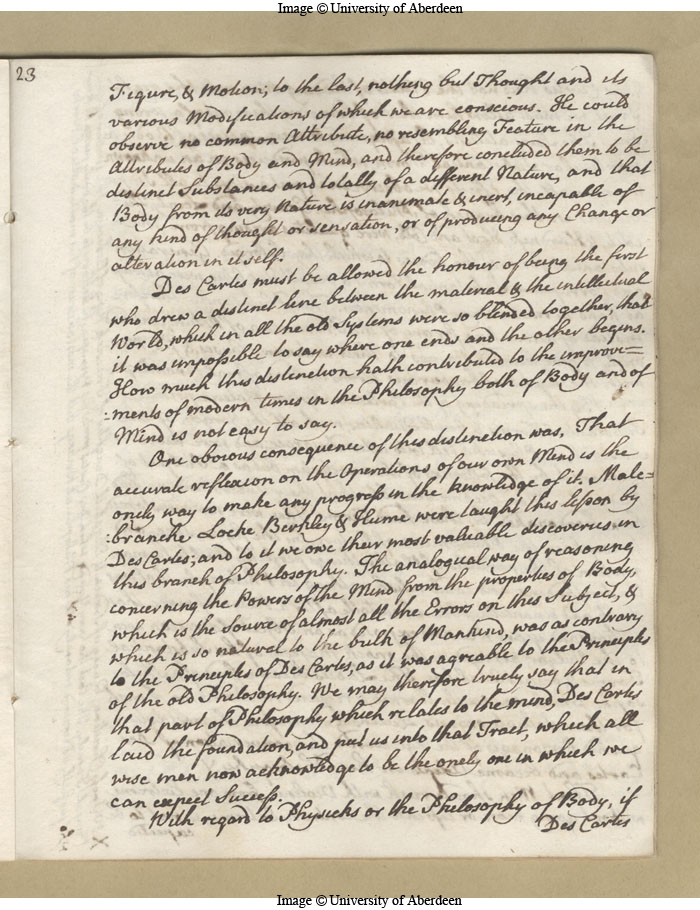 Image © University of Aberdeen
23
Figure, & Motion; to the last, nothing but Thought and its
various Modifications of which we are conscious. He could
observe no common Attribute, no resembling Feature in the
Attributes of Body and Mind, and therefore concluded them to be
distinct Substances and totally of a different Nature, and that
Body from its very Nature is inanimate & inert, incapable of
any kind of thought or sensation, or of producing any Change or
alteration in itself.
Des Cartes must be allowed the honour of being the first
who drew a distinct line between the material & the intellectual
World, which in all the old Systems were so blended together, that
it was impossible to say where one ends and the other begins.
How much this distinction hath contributed to the improve=
=ments of modern times in the Philosophy both of Body and of
Mind is not easy to say.
One obvious consequence of this distinction was, That
accurate reflexion on the Operations of our own Mind is the
onely way to make any progress in the knowledge of it. Male=
=branche Locke Berkley & Hume were taught this lesson by
Des Cartes; and to it we owe their most valuable discoveries in
this branch of Philosophy. The analogical way of reasoning
concerning the Powers of the Mind from the properties of Body,
which is the Source of almost all the Errors on this Subject, &
which is so natural to the bulk of Mankind, was as contrary
to the Principles of Des Cartes, as it was agreable to the Principles
of the old Philosophy. We may therefore truely say that in
that part of Philosophy which relates to the mind, Des Cartes
laid the foundation, and put us into that Tract, which all
wise men now acknowledge to be the onely one in which we
can expect Success.
With regard to Physicks or the Philosophy of Body, if
Des Cartes
Image © University of Aberdeen